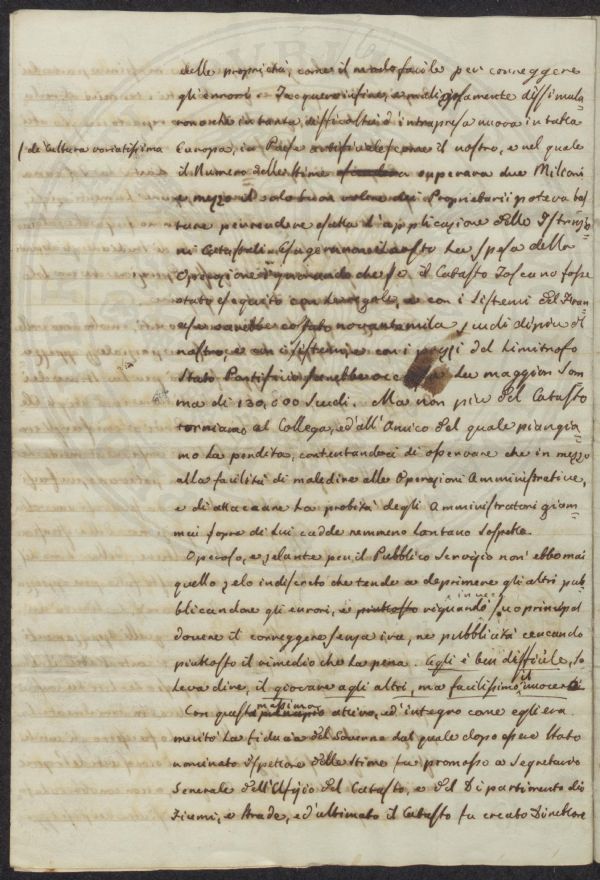 delle proprietà, come il modo facile per correggere
gli errori. Tacquero infine, e maliziosamente dissimula=
rono che in tanta difficoltà d'intrapresa nuova in tutta
/ di Cultura variatissima
Europa, in Paese come il nostro, e nel quale
il Numero delle stime a superara due Milioni
e mezzo il solo buon volere dei Proprietarii poteva bas=
tare per rendere esatta l'applicazione delle Istruzio=
ni Catastali. Esagerarono il costo la spesa della
Operazione ignorando che se il Catasto Toscano fosse
stato eseguito con le regole, e con i sistemi del Fran=
ese sarebbe costato novantamila scudi di più del
nostro, e con i sistemi, e con i prezzi del limitrofo
Stato Pontificio sarebbe la maggior Som=
ma di 130,000 Scudi. Ma non più del Catasto
torniamo al Collega, ed all'Amico del quale piangia=
mo la perdita, contentandoci di osservare che in mezzo
alla facilità di maledire alle Operazioni Amministrative,
e di attaccare la probità degli Amministratori giam=
mai sopra di Lui cadde nemmeno lontano Sospetto.
Operoso, e zelante per il Pubblico Servizio non ebbe mai
quello zelo indiscreto che tende a deprimere gli altri pub=
blicandone gli errori, e piuttosto invece riguardò suo principal
dovere il correggere senza ira, nè pubblicità cercando
piuttosto il rimedio che la pena. Egli è ben difficile, so
leva dire, il giovare agli altri, ma facilissimo il nuocere
Con questa principio massima attivo, ed integro come egli era
meritò la fiducia del Governo dal quale dopo esser stato
nominato Ispettore delle Stime fu promosso a Segretario
Generale dell'Ufizio del Catasto, e del Dipartimento di
Fiumi, e Strade, ed ultimato il Catasto fu creato Direttore